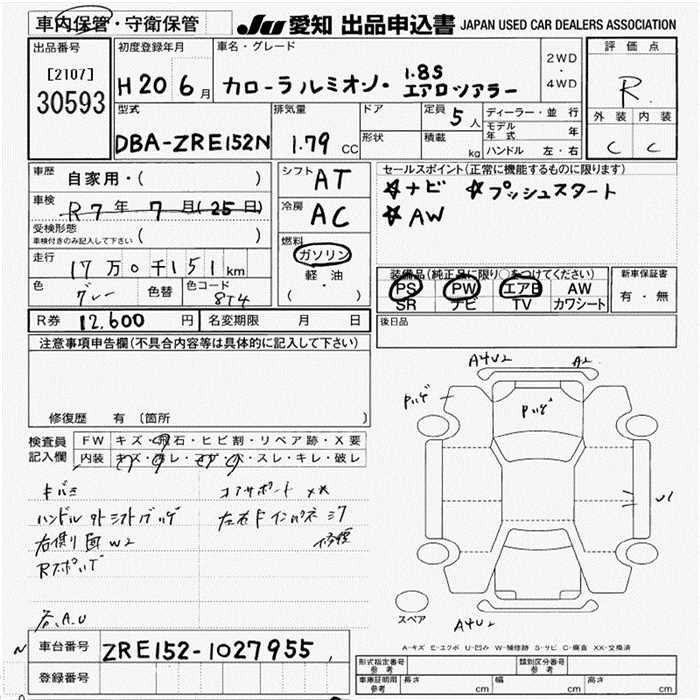 車内保管・守衛保管
JU 愛知 出品申込書 JAPAN USED CAR DEALERS ASSOCIATION
出品番号
[2107]
30593
初度登録年月
H20年6月
車名・グレード
カローラルミオン・1.8S エアロツアラー
2WD
・
4WD
評価点
R
外装 内装
C C
型式
DBA-ZRE152N
排気量
1.79 CC
ドア
形状
定員 5人
積載 kg
ディーラー・並行
モデル年式 年
ハンドル 左・右
車歴 自家用・( )
車検 R7年7月(25日)
受検形態
車検付きのみ記入して下さい ( )
走行 17万0千151km
色 グレー 色替 色コード 8T4
シフト AT
冷房 AC
燃料
ガソリン
軽油
( ・ )
セールスポイント(正常に機能するものに限ります)
☆ナビ ☆プッシュスタート
☆AW
装備品(純正品に限り○をつけてください)
PS PW エアB AW
SR ナビ TV カワシート
新車保証書
有・無
後日品
R券 12,600円 名変期限 月 日
注意事項申告欄(不具合内容等は具体的に記入して下さい)
修復歴 有 〔箇所 〕
検査員記入欄
FW キズ・飛石・ヒビ割・リペア跡・X要
内装 スレ・キレ・破レ
キバミ
右側面W2
コアサポートXX
修理
A4U2 A2
U1
スペア
A4U2
A-キズ E-エクボ U-凹み W-補修跡 S-サビ C-腐食 XX-交換済
車台番号 ZRE152-1027955
登録番号
形式指定番号 参考
類別区分番号 参考
車庫証明用 参考 長さ cm 幅 cm 高さ cm